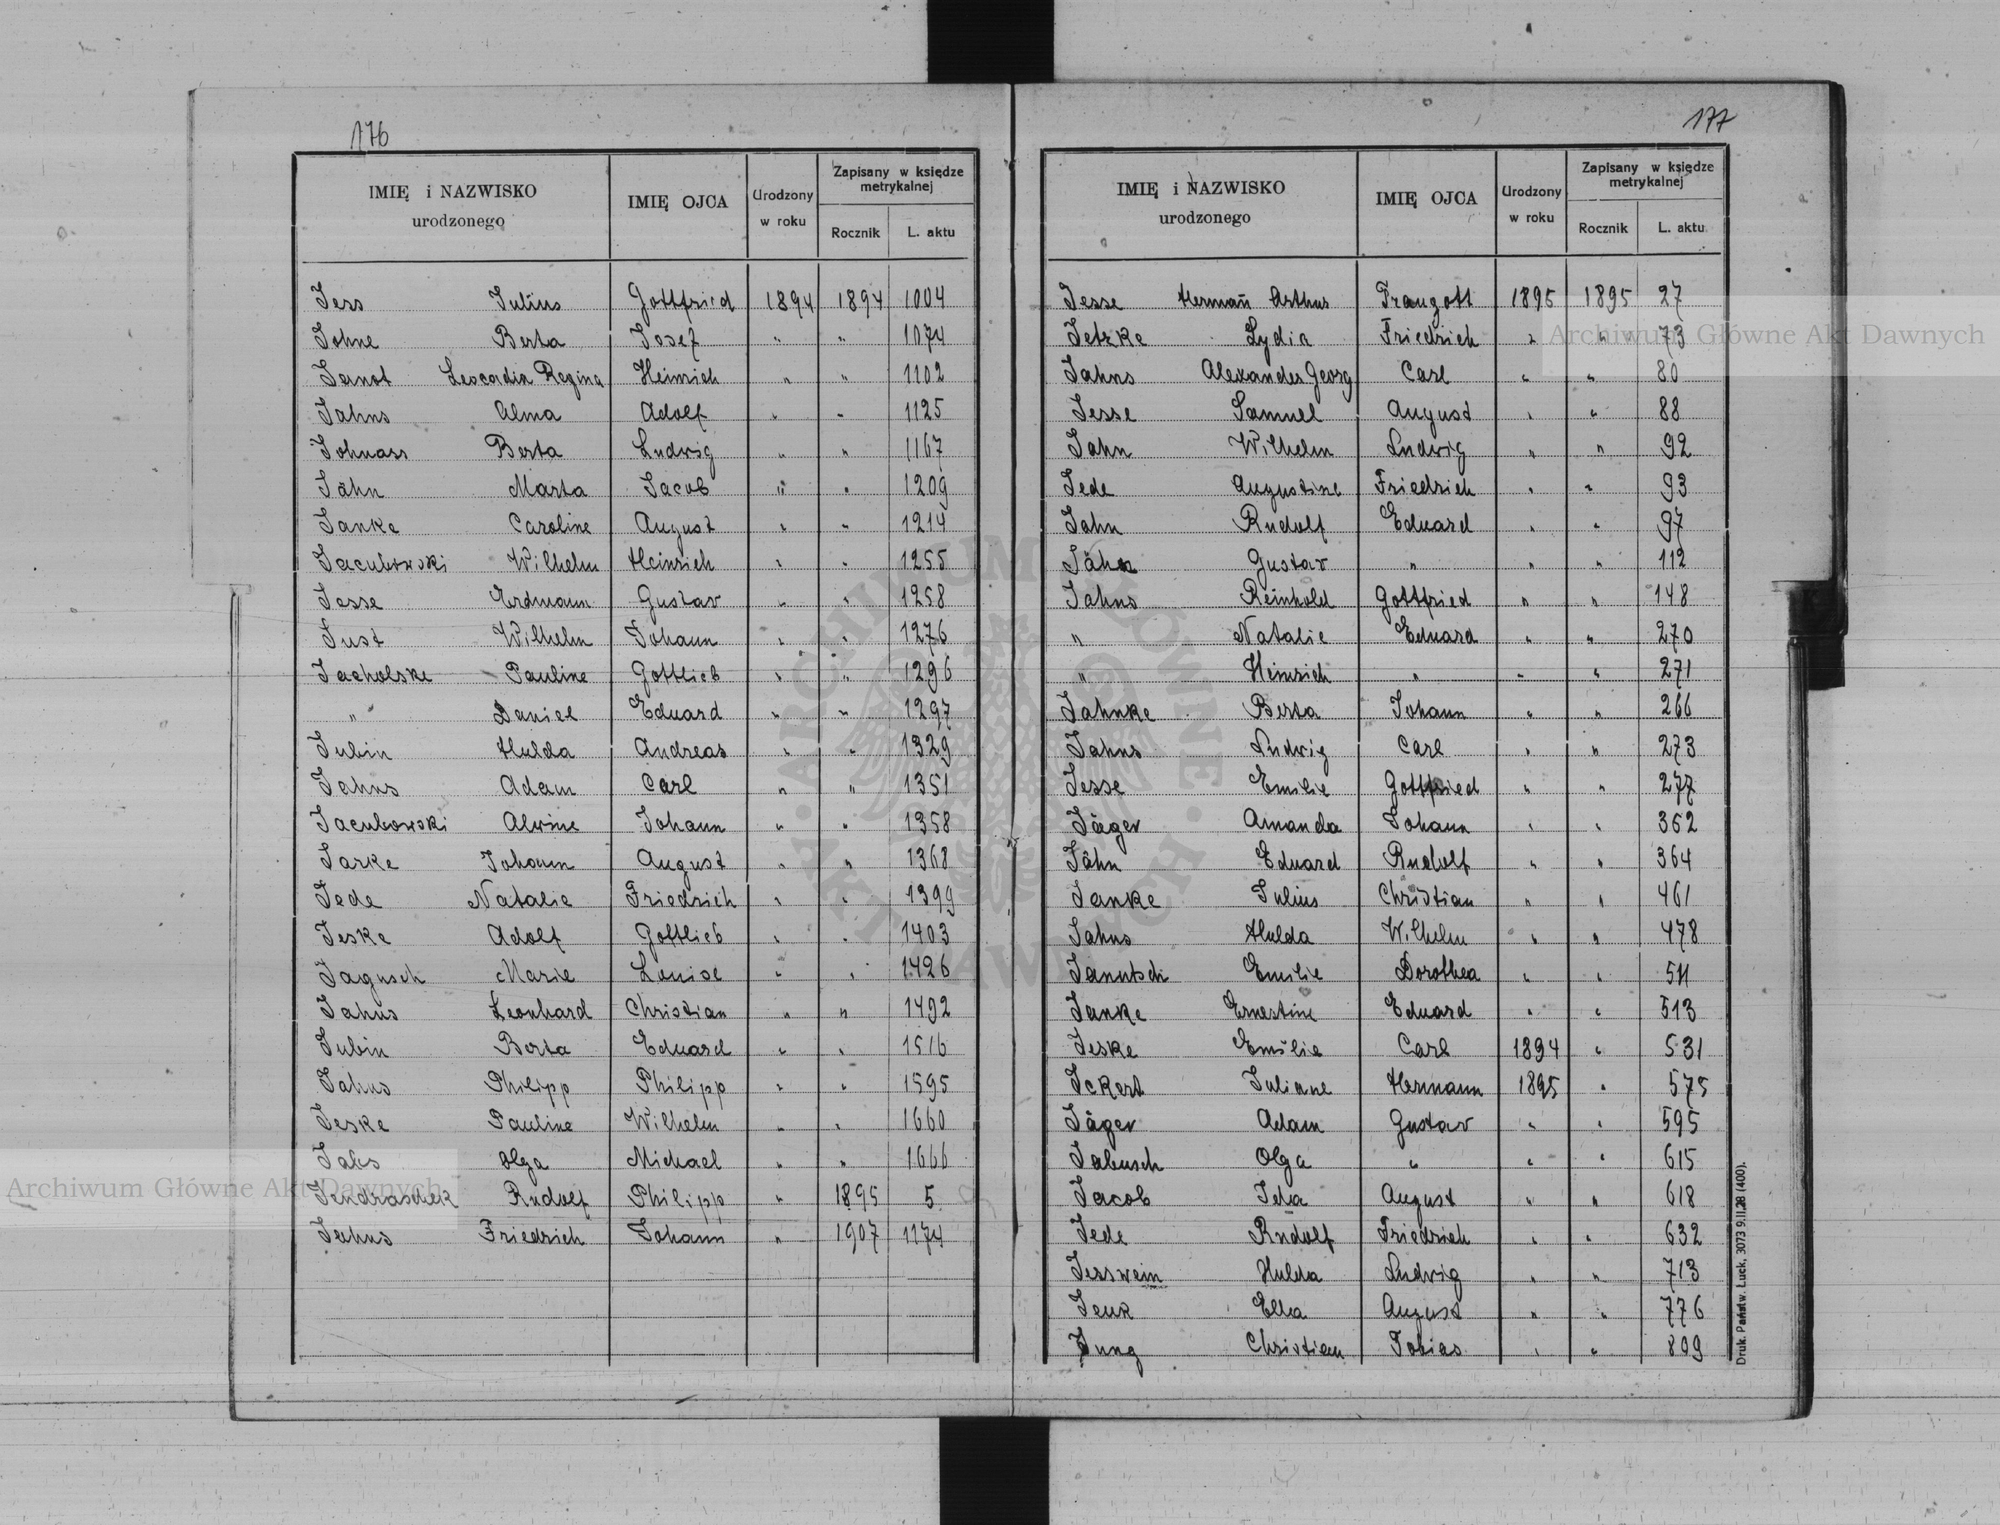 176
IMIĘ i NAZWISKO urodzonego | IMIĘ OJCA | Urodzony w roku | Zapisany w księdze metrykalnej
Rocznik | L. aktu
Jess Julius | Gottfried | 1894 | 1894 | 1004
Johne Berta | Josef | " | " | 1074
Janot Leocardia Regina | Heinrich | " | " | 1102
Jahns Alma | Adolf | " | " | 1125
Johnass Berta | Ludwig | " | " | 1167
Jähn Marta | Jacob | " | " | 1209
Janke Caroline | August | " | " | 1214
Jacubowski Wilhelm | Heinrich | " | " | 1255
Jesse Erdmann | Gustav | " | " | 1258
Just Wilhelm | Johann | " | " | 1276
Jacholske Pauline | Gottlieb | " | " | 1296
" Daniel | Eduard | " | " | 1297
Jubin Hulda | Andreas | " | " | 1329
Jahns Adam | Carl | " | " | 1351
Jacubowski Alvine | Johann | " | " | 1358
Jarke Johann | August | " | " | 1368
Jede Natalie | Friedrich | " | " | 1399
Jeske Adolf | Gottlieb | " | " | 1403
Jagusch Marie | Louise | " | " | 1426
Jahns Leonhard | Christian | " | " | 1492
Jubin Berta | Eduard | " | " | 1516
Jahns Philipp | Philipp | " | " | 1595
Jeske Pauline | Wilhelm | " | " | 1660
Jabs Olga | Michael | " | " | 1666
Jendraschek Rudolf | Philipp | " | 1895 | 5
Jahns Friedrich | Johann | " | 1907 | 1174
177
IMIĘ i NAZWISKO urodzonego | IMIĘ OJCA | Urodzony w roku | Zapisany w księdze metrykalnej
Rocznik | L. aktu
Jesse Hermañ Arthur | Traugott | 1895 | 1895 | 27
Jetzke Lydia | Friedrich | " | " | 73
Jahns Alexander Georg | Carl | " | " | 80
Jesse Samuel | August | " | " | 88
Jahn Wilhelm | Ludwig | " | " | 92
Jede Augustine | Friedrich | " | " | 93
Jahn Rudolf | Eduard | " | " | 97
Jähn Gustav | " | " | " | 112
Jahns Reinhold | Gottfried | " | " | 148
" Natalie | Eduard | " | " | 270
" Heinrich | " | " | " | 271
Jahnke Berta | Johann | " | " | 266
Jahns Ludwig | Carl | " | " | 273
Jesse Emilie | Gottfried | " | " | 277
Jäger Amanda | Johann | " | " | 362
Jähn Eduard | Rudolf | " | " | 364
Janke Julius | Christian | " | " | 461
Jahns Hulda | Wilhelm | " | " | 478
Janutsch Emilie | Dorothea | " | " | 511
Janke Ernestine | Eduard | " | " | 513
Jeske Emilie | Carl | 1894 | " | 531
Jckert Juliane | Hermann | 1895 | " | 575
Jäger Adam | Gustav | " | " | 595
Jabusch Olga | " | " | " | 615
Jacob Ida | August | " | " | 618
Jede Rudolf | Friedrich | " | " | 632
Jesswein Hulda | Ludwig | " | " | 713
Jeuk Ella | August | " | " | 776
Jung Christian | Tobias | " | " | 809
Druk. Państw. Łuck, 3073 9.II.28 (400).
Archiwum Główne Akt Dawnych
Archiwum Główne Akt Dawnych
ARCHIWUM GŁÓWNE AKT DAWNYCH